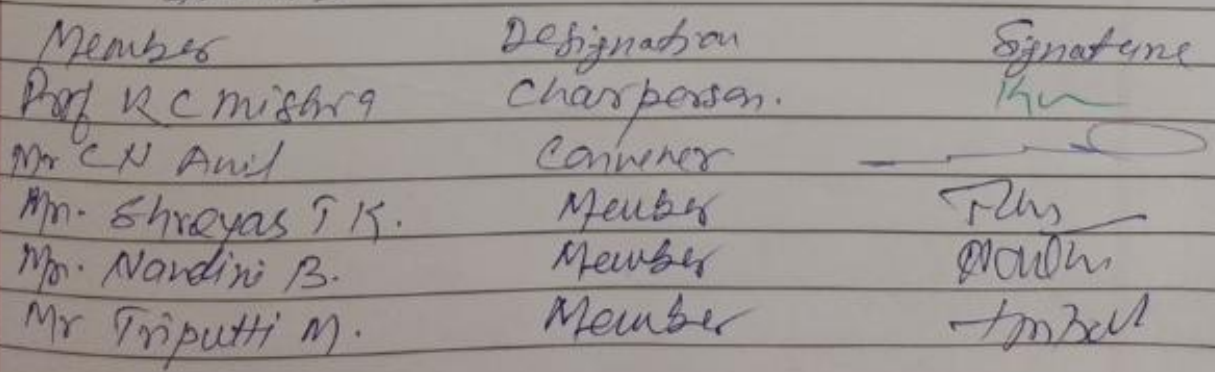 Member Designation Signature
Prof R C Mishra Chairperson.
Mr C N Anil Convener
Mr. Shreyas T K. Member
Mr. Nandini B. Member
Mr Triputti M. Member